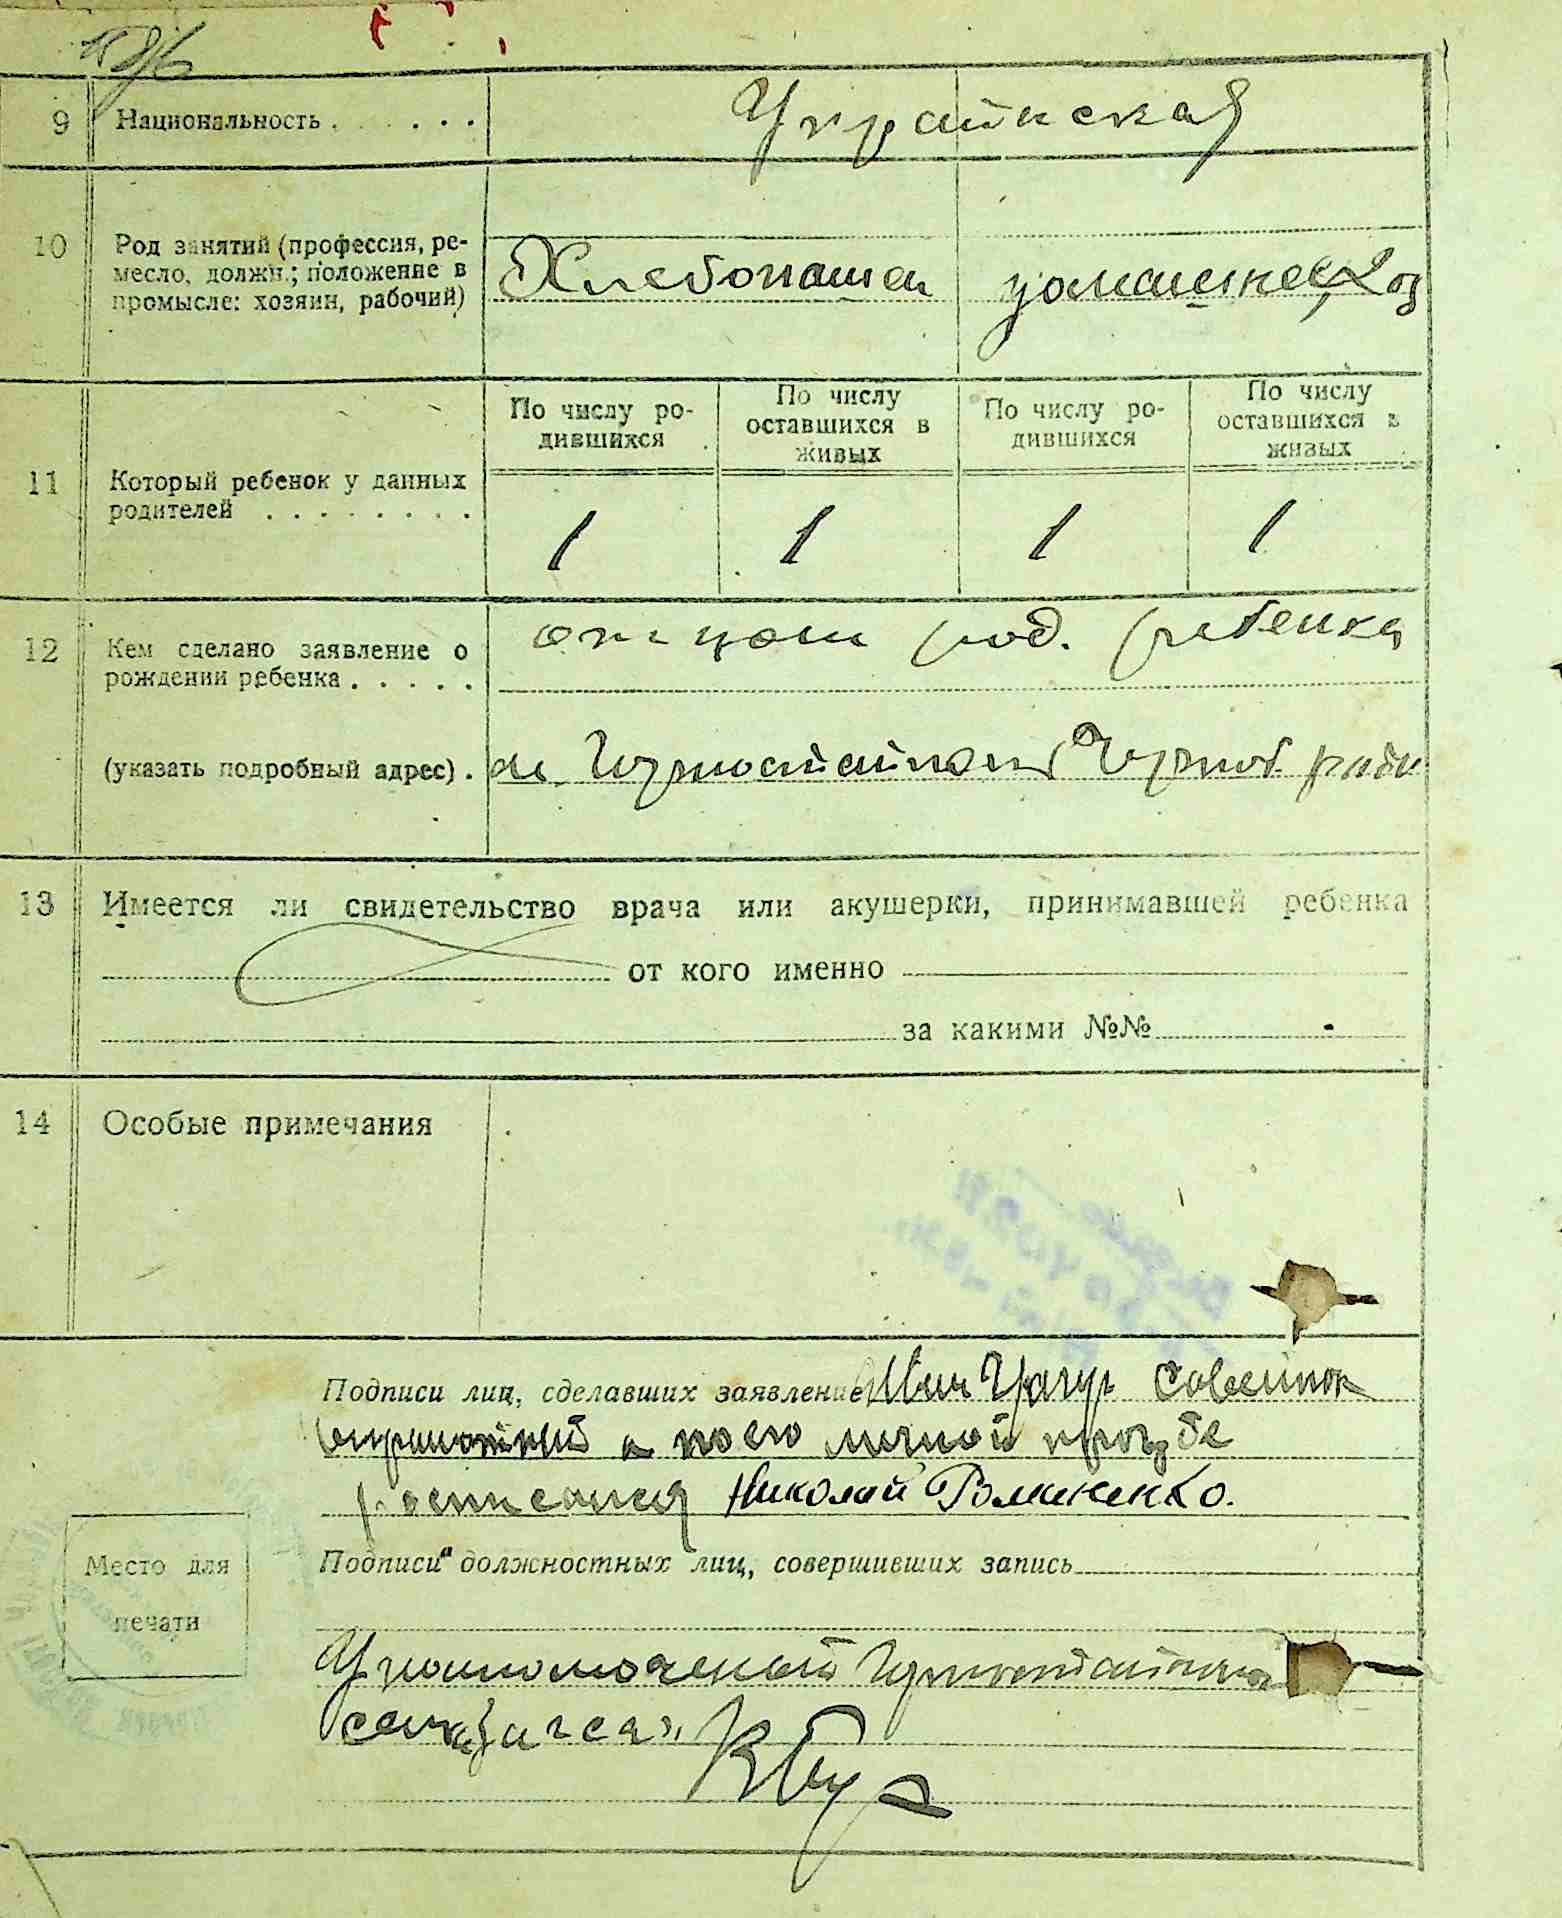 9 Национальность . . . . . . Украинская
10 Род занятий (профессия, ре-
месло, должн.; положение в
промысле: хозяин, рабочий)
Хлебопашец домашнее хоз
По числу ро-
дившихся
По числу
оставшихся в
живых
По числу ро-
дившихся
По числу
оставшихся в
живых
11 Который ребенок у данных
родителей . . . . . . . .
1 1 1 1
12 Кем сделано заявление о
рождении ребенка . . . . .
отцом род. ребенка
(указать подробный адрес) .
13 Имеется ли свидетельство врача или акушерки, принимавшей ребенка
от кого именно
за какими №№
14 Особые примечания
Подписи лиц, сделавших заявление
по его личной просьбе
росписался Николай Романенко.
Подписи должностных лиц, совершивших запись
Место для
печати
Уполномоченый